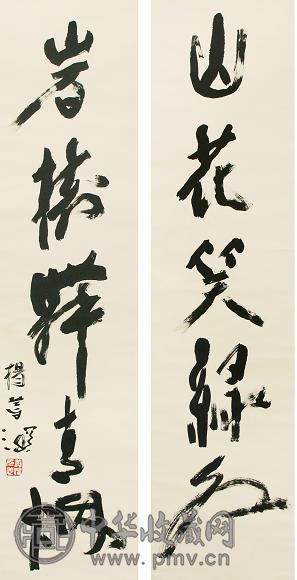 山花笑綠水
岩樹舞青烟
楊善深
中华收藏网
www.pmv.cn